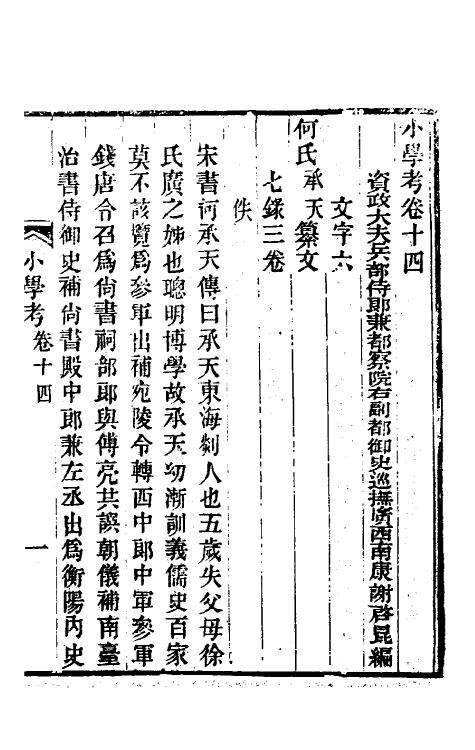 小學考卷十四
資政大夫兵部侍郎兼都察院右副都御史巡撫廣西南康謝啓昆編
文字六
何氏承天纂文
七錄三卷
佚
宋書何承天傳曰承天東海剡人也五歲失父母徐
氏廣之姊也聰明博學故承天幼漸訓義儒史百家
莫不該覽爲參軍出補宛陵令轉西中郎中軍參軍
錢唐令召爲尙書祠部郎與傅亮共譔朝儀補南臺
治書侍御史補尙書殿中郎兼左丞出爲衡陽內史
小學考卷十四
一